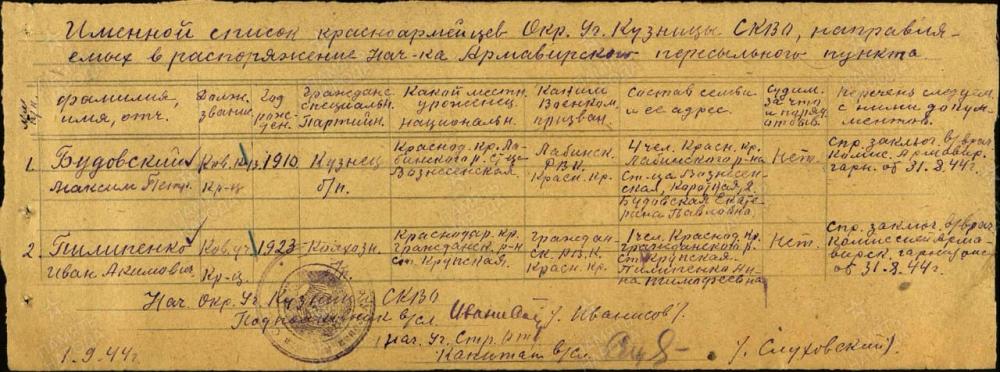 Именной список красноармейцев Окр. Уч. Кузницы СКВО, направля-
емых в распоряжение Нач-ка Армавирского пересыльного пункта.
№№ п/п.
Фамилия, имя, отч.
Долж. звание.
Год рожден.
Граждан. специальн. Партийн.
Какой местн. уроженец. Национальн.
Каким Военком. призван.
Состав семьи и ее адрес.
Судим. за что
Перечень следуем. с ними докум-ментов.
1. Будовский Максим Петр.
Ков. Куз. Кр-ц
1910
Кузнец б/п.
Краснод. кр. Ла-
бинского р. ст-ца
Вознесенская.
Лабинск.
РВК
Красн. кр.
4 чел. Красн. кр.
Лабинского р-на
Ст-ца Вознесен-
ская, Коротная, 2.
Будовская Екате-
рина Павловна.
Нет.
спр. заключ. в/врач.
Комис. Армавир.
гарн. от 31.8.44г.
2 Пилипенко Иван Акимович
Ков. уч. Кр-ц.
1923
Колхозн.
Краснодар. кр.
гражданск. р-н
ст. Крупская.
граждан-
ск. Р.В.К.
Красн. кр.
1 чел. Краснод. кр.
гражданского р.
ст. Крупская.
Пилипенко Ан-
на Тимофеевна
Нет.
спр. заключ. в/врач.
Комиссией Арма-
вирск. гарнизона
от 31.8.44г.
Нач. Окр. Уч. Кузницы СКВО
Подполковник в/сл. /. Иванисов /.
Нач. Уч. Стр.
Капитан в/сл. /. Слуховский /.
1.9.44г.